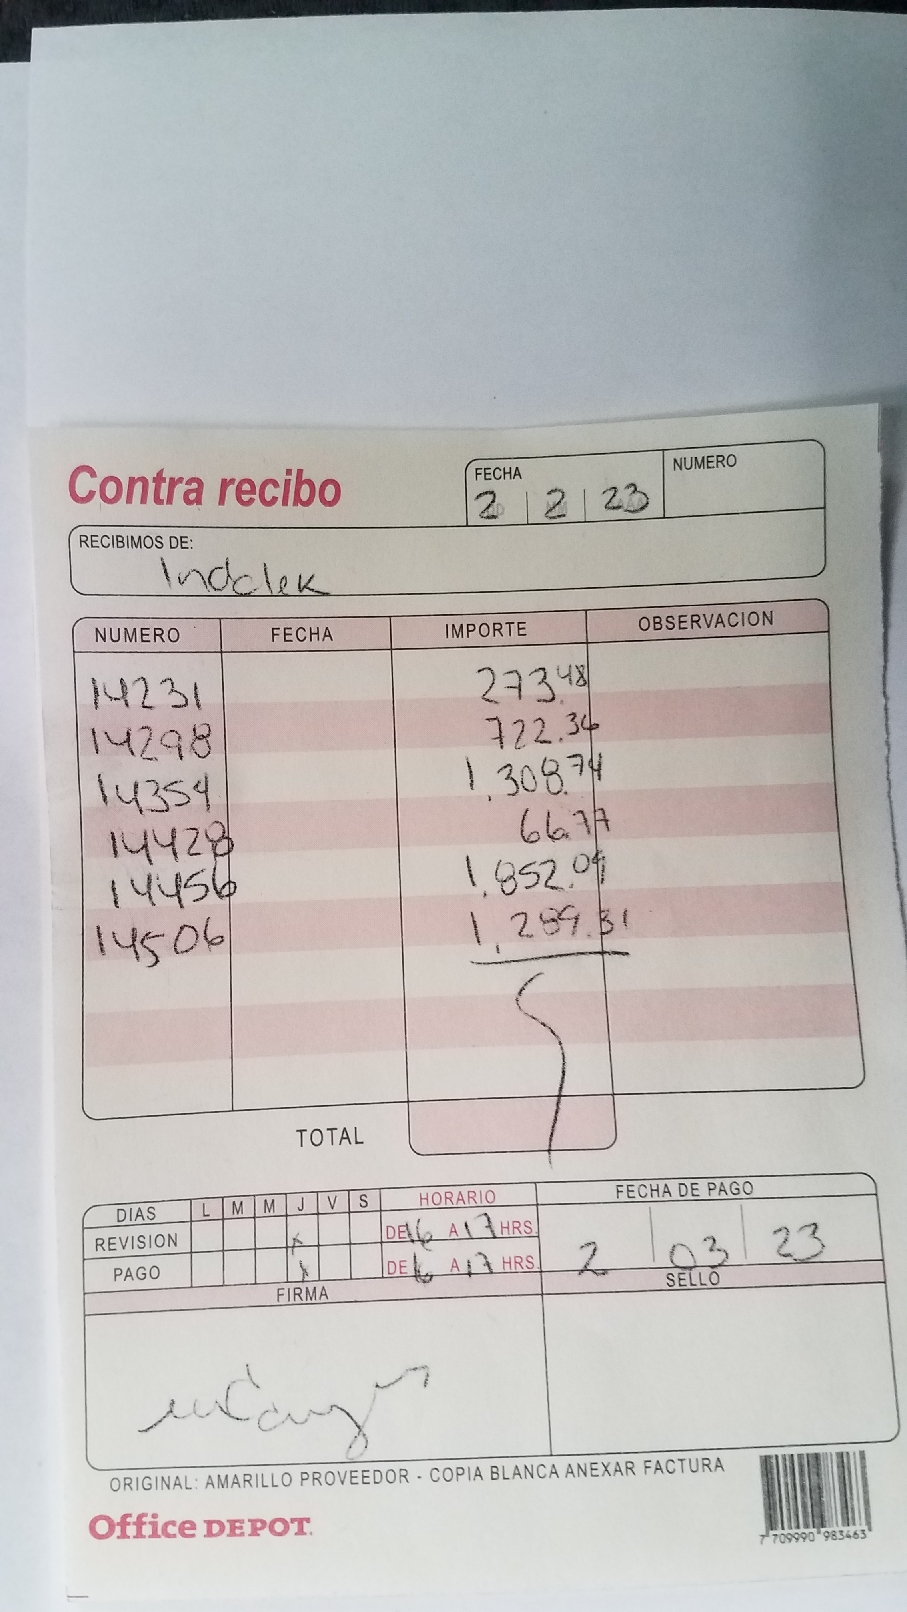 Contra recibo
FECHA
2 2 23
NUMERO
RECIBIMOS DE:
Indclek
NUMERO FECHA IMPORTE OBSERVACION
14231 273.48
14298 722.36
14354 1,308.74
14428 66.77
14456 1,852.09
14506 1,289.31
TOTAL
DIAS L M M J V S HORARIO FECHA DE PAGO
REVISION x DE 16 A 17 HRS.
PAGO x DE 16 A 17 HRS.
2 03 23
FIRMA SELLO
ORIGINAL: AMARILLO PROVEEDOR - COPIA BLANCA ANEXAR FACTURA
Office DEPOT.
7 709990 983463